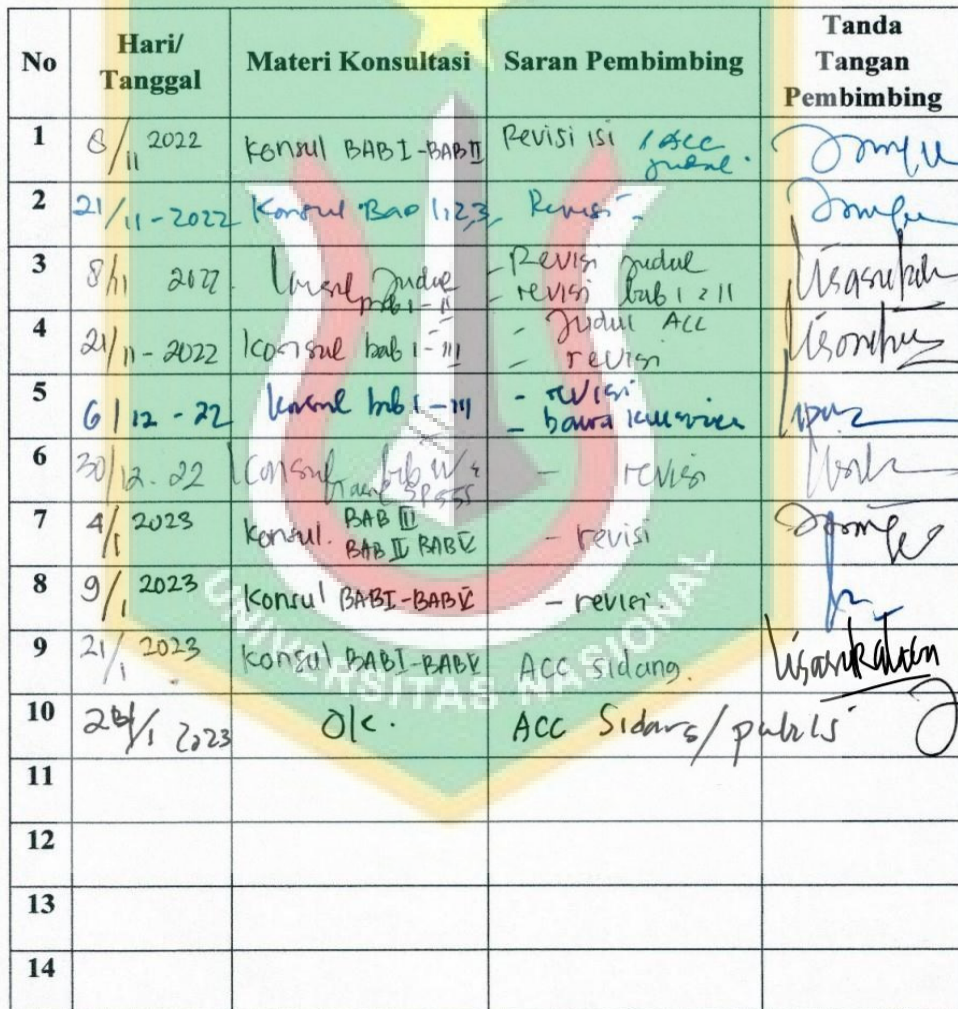 No Hari/ Tanggal Materi Konsultasi Saran Pembimbing Tanda Tangan Pembimbing
1 8/11 2022 Konsul BAB I-BAB II Revisi isi / ACC judul.
2 21/11-2022 Konsul Bab 1,2,3, Revisi -
3 8/11 2022. Konsul Judul bab 1-11 - Revisi judul - revisi bab 1 2 11
4 21/11-2022 Konsul bab 1-III - Judul ACC - revisi
5 6/12-22 Konsul bab 1-III - revisi - bawa
6 30/12.22 Konsul bab SPSS - revisi
7 4/1 2023 Konsul. BAB III BAB IV BAB V - revisi
8 9/1 2023 Konsul BAB I-BAB V - revisi.
9 21/1 2023 Konsul BAB I-BAB V ACC sidang.
10 2023 Ok. ACC Sidang/publis
11
12
13
14
UNIVERSITAS NASIONAL